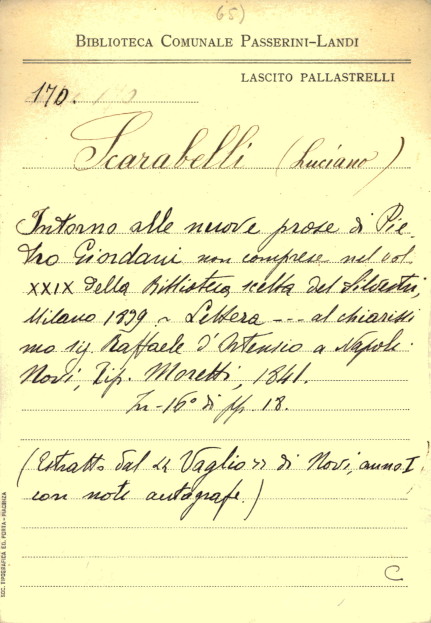 65)
BIBLIOTECA COMUNALE PASSERINI-LANDI
LASCITO PALLASTRELLI
170.
Scarabelli (Luciano)
Intorno alle nuove prose di Pie-
tro Giordani non comprese nel vol.
XXIX della Biblioteca scelta del Silvestri,
Milano 1839 ~ Lettera --- al chiarissi
mo sig. Raffaele d'Ortensio a Napoli.
Novi, Tip. Moretti, 1841.
In-16° di pp. 18.
(Estratto dal « Vaglio » di Novi, anno I
con note autografe.)
C
SOC. TIPOGRAFICA ED. PORTA - PIACENZA